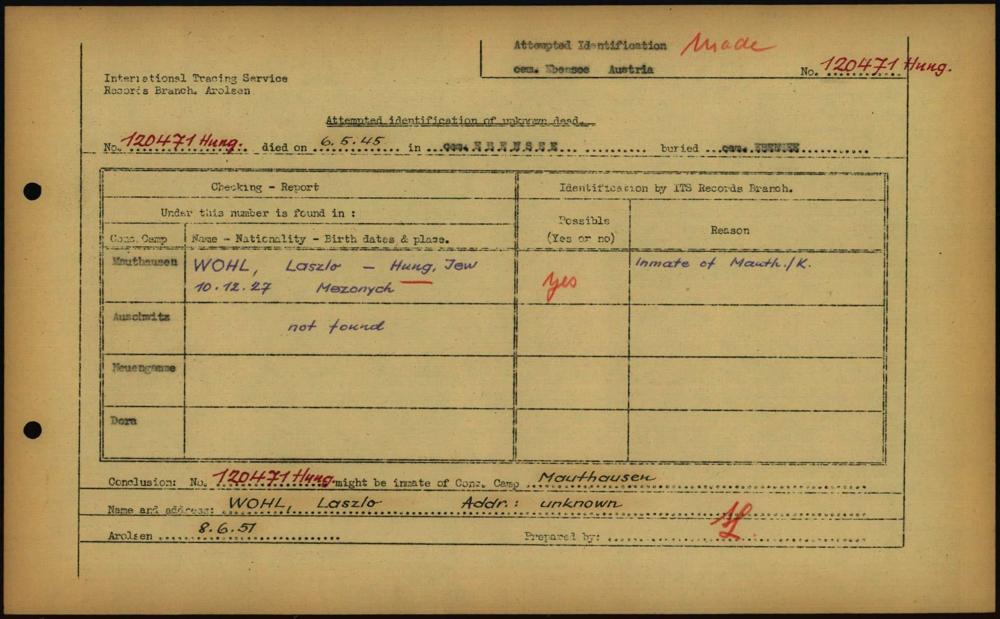 Attempted Identification Made
cem. Ebensee Austria
No. 120471 Hung.
International Tracing Service
Records Branch. Arolsen
Attempted identification of unknown dead.
No. 120471 Hung. died on 6.5.45 in cem. EBENSEE buried cem. EBENSEE
Checking - Report
Identification by ITS Records Branch.
Under this number is found in :
Possible
(Yes or no)
Reason
Conc. Camp
Name - Nationality - Birth dates & place.
Mauthausen
WOHL, Laszlo - Hung. Jew
10.12.27 Mezonych
yes
Inmate of Mauth./K.
Auschwitz
not found
Neuengamme
Dora
Conclusion: No. 120471 Hung. might be inmate of Conc. Camp Mauthausen
Name and address: WOHL, Laszlo Addr.: unknown
Arolsen 8.6.51
Prepared by: